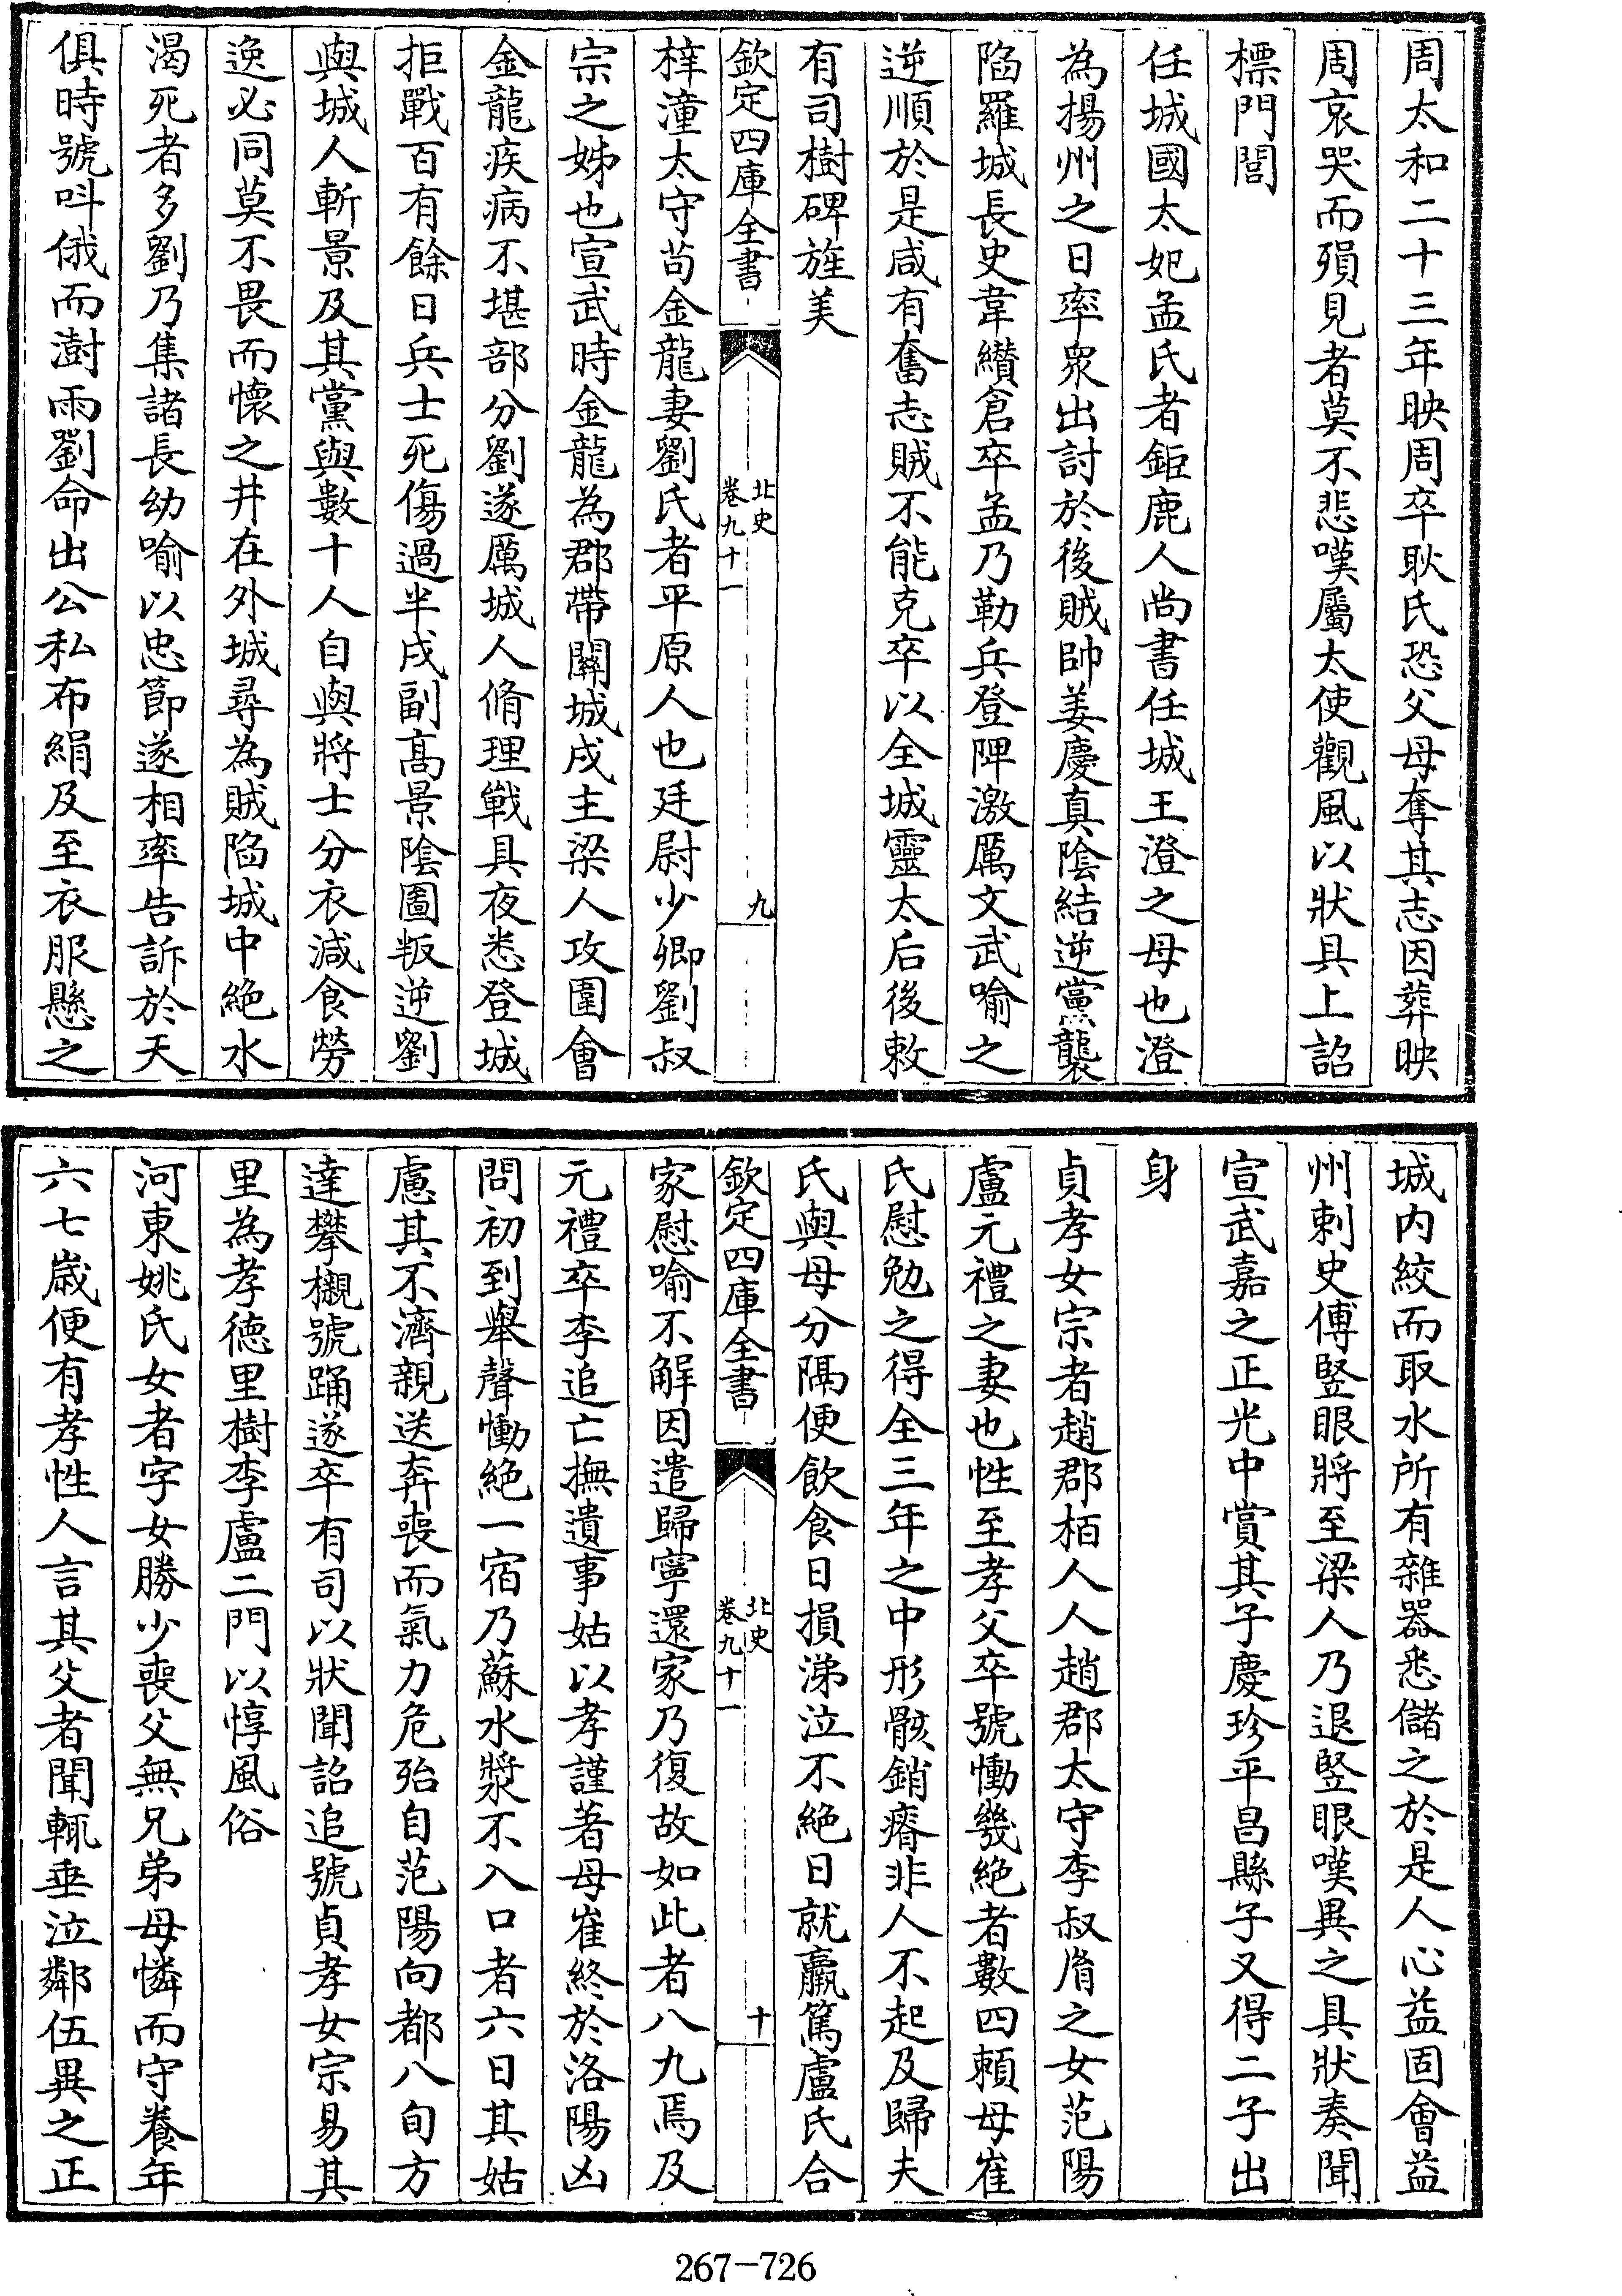 周太和二十三年映周卒耿氏恐父母奪其志因葬映
周哀哭而殞見者莫不悲嘆屬太使觀風以狀具上詔
標門閭
任城國太妃孟氏者鉅鹿人尚書任城王澄之母也澄
為揚州之日率衆出討於後賊帥姜慶真陰結逆黨襲
陷羅城長史韋纘倉卒孟乃勒兵登陴激厲文武喻之
逆順於是咸有奮志賊不能克卒以全城靈太后後敕
有司樹碑旌美
欽定四庫全書
北史
卷九十一
九
梓潼太守苟金龍妻劉氏者平原人也廷尉少卿劉叔
宗之姊也宣武時金龍為郡帶關城戍主梁人攻圍會
金龍疾病不堪部分劉遂厲城人脩理戰具夜悉登城
拒戰百有餘日兵士死傷過半戍副高景陰圖叛逆劉
與城人斬景及其黨與數十人自與將士分衣減食勞
逸必同莫不畏而懷之井在外城尋為賊陷城中絕水
渴死者多劉乃集諸長幼喻以忠節遂相率告訴於天
俱時號呌俄而澍雨劉命出公私布絹及至衣服懸之
城内絞而取水所有雜器悉儲之於是人心益固會益
州刺史傅竪眼將至梁人乃退竪眼嘆異之具狀奏聞
宣武嘉之正光中賞其子慶珍平昌縣子又得二子出
身
貞孝女宗者趙郡栢人人趙郡太守李叔胤之女范陽
盧元禮之妻也性至孝父卒號慟幾絶者數四賴母崔
氏慰勉之得全三年之中形骸銷瘠非人不起及歸夫
氏與母分隔便飲食日損涕泣不絶日就羸篤盧氏合
欽定四庫全書
北史
卷九十一
十
家慰喻不解因遣歸寧還家乃復故如此者八九焉及
元禮卒李追亡撫遺事姑以孝謹著母崔終於洛陽凶
問初到舉聲慟絶一宿乃蘇水漿不入口者六日其姑
慮其不濟親送奔喪而氣力危殆自范陽向都八旬方
達攀櫬號踊遂卒有司以狀聞詔追號貞孝女宗易其
里為孝德里樹李盧二門以惇風俗
河東姚氏女者字女勝少喪父無兄弟母憐而守養年
六七歳便有孝性人言其父者聞輒垂泣鄰伍異之正
267-726